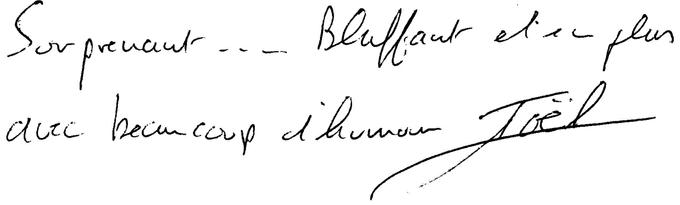 Surprenant... Bluffant et en plus
avec beaucoup d'humour Joël